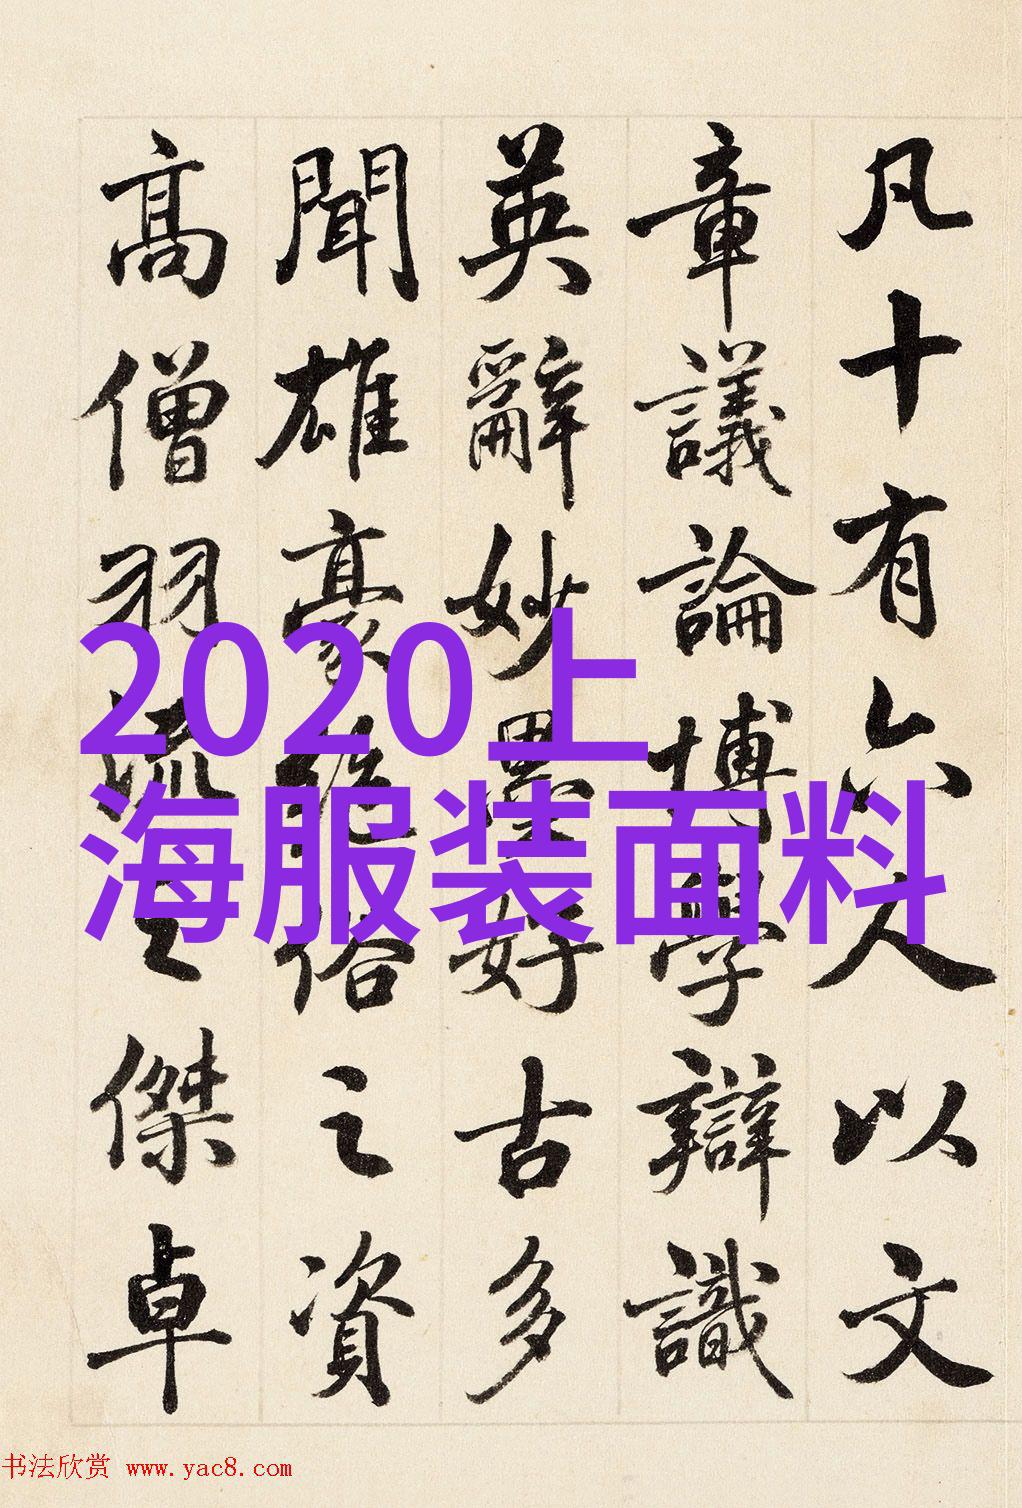 凡十有六人以文
章議論博學辯識
英辭妙墨好古多
聞雄豪絕俗之資
高僧羽流之傑卓
2020上
海服装面料
书法欣赏 www.yac8.com